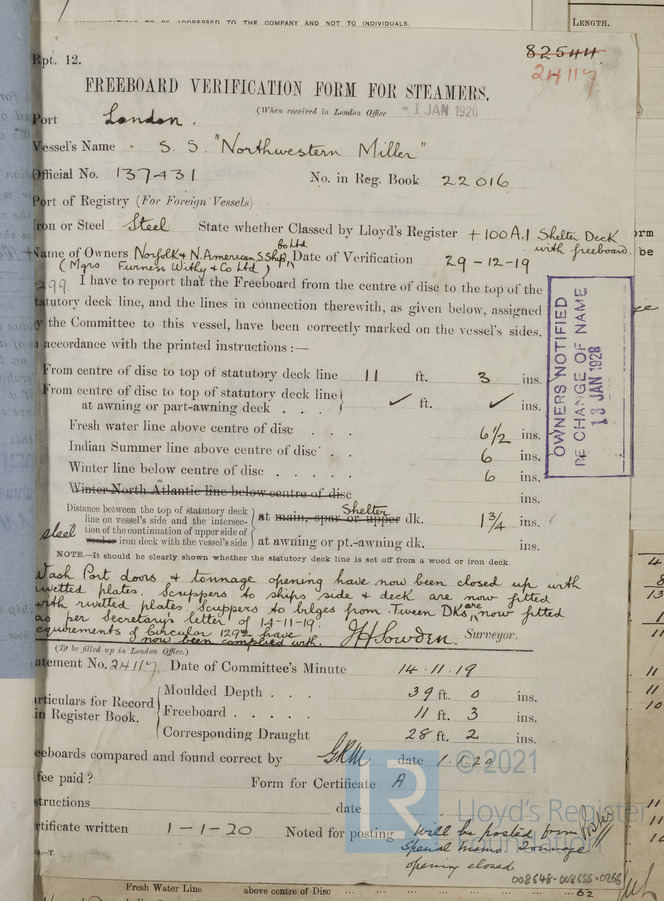 TO BE ADDRESSED TO THE COMPANY AND NOT TO INDIVIDUALS.
LENGTH.
Rpt. 12.
82544.
24117
FREEBOARD VERIFICATION FORM FOR STEAMERS.
(When received in London Office -1 JAN 1920
Port London.
Vessel's Name S. S. "Northwestern Miller"
Official No. 137431 No. in Reg. Book 22016
Port of Registry (For Foreign Vessels)
Iron or Steel Steel State whether Classed by Lloyd's Register +100A.1 Shelter Deck
with freeboard.
Name of Owners Norfolk & N. American S Ship Co Ltd Date of Verification 29-12-19
(Mgrs Furness Withy & Co Ltd)
299. I have to report that the Freeboard from the centre of disc to the top of the
tatutory deck line, and the lines in connection therewith, as given below, assigned
y the Committee to this vessel, have been correctly marked on the vessel's sides,
accordance with the printed instructions :—
From centre of disc to top of statutory deck line 11 ft. 3 ins.
From centre of disc to top of statutory deck line
at awning or part-awning deck . . . ✓ ft. ✓ ins.
Fresh water line above centre of disc . . . 6½ ins.
Indian Summer line above centre of disc . . . 6 ins.
Winter line below centre of disc . . . . . 6 ins.
Winter North Atlantic line below centre of disc ins.
Distance between the top of statutory deck
line on vessel's side and the intersec-
tion of the continuation of upper side of
steel wood or iron deck with the vessel's side
at main, spar or upper Shelter dk. 1¾ ins.
at awning or pt.-awning dk. ins.
NOTE.—It should be clearly shown whether the statutory deck line is set off from a wood or iron deck.
Wash Port doors & tonnage opening have now been closed up with
rivetted plates. Scuppers to ships side & deck are now fitted
with rivetted plates. Scuppers to bilges from Tween Dks are now fitted
as per Secretary's letter of 14-11-19.
equirements of Circular 1292 have
now been complied with. J H Sowden. Surveyor.
(To be filled up in London Office.)
atement No. 24117 Date of Committee's Minute 14.11.19
articulars for Record
in Register Book.
Moulded Depth . . . 39 ft. 0 ins.
Freeboard . . . . . 11 ft. 3 ins.
Corresponding Draught 28 ft. 2 ins.
eeboards compared and found correct by GRM date 1.1.20
fee paid? Form for Certificate A
structions date
rtificate written 1-1-20 Noted for posting Will be posted from
Special memo Tonnage
opening closed
OWNERS NOTIFIED
RE CHANGE OF NAME
13 JAN 1928
© 2021
Lloyd's Register
Foundation
008648-008655-0266
Fresh Water Line above centre of Disc